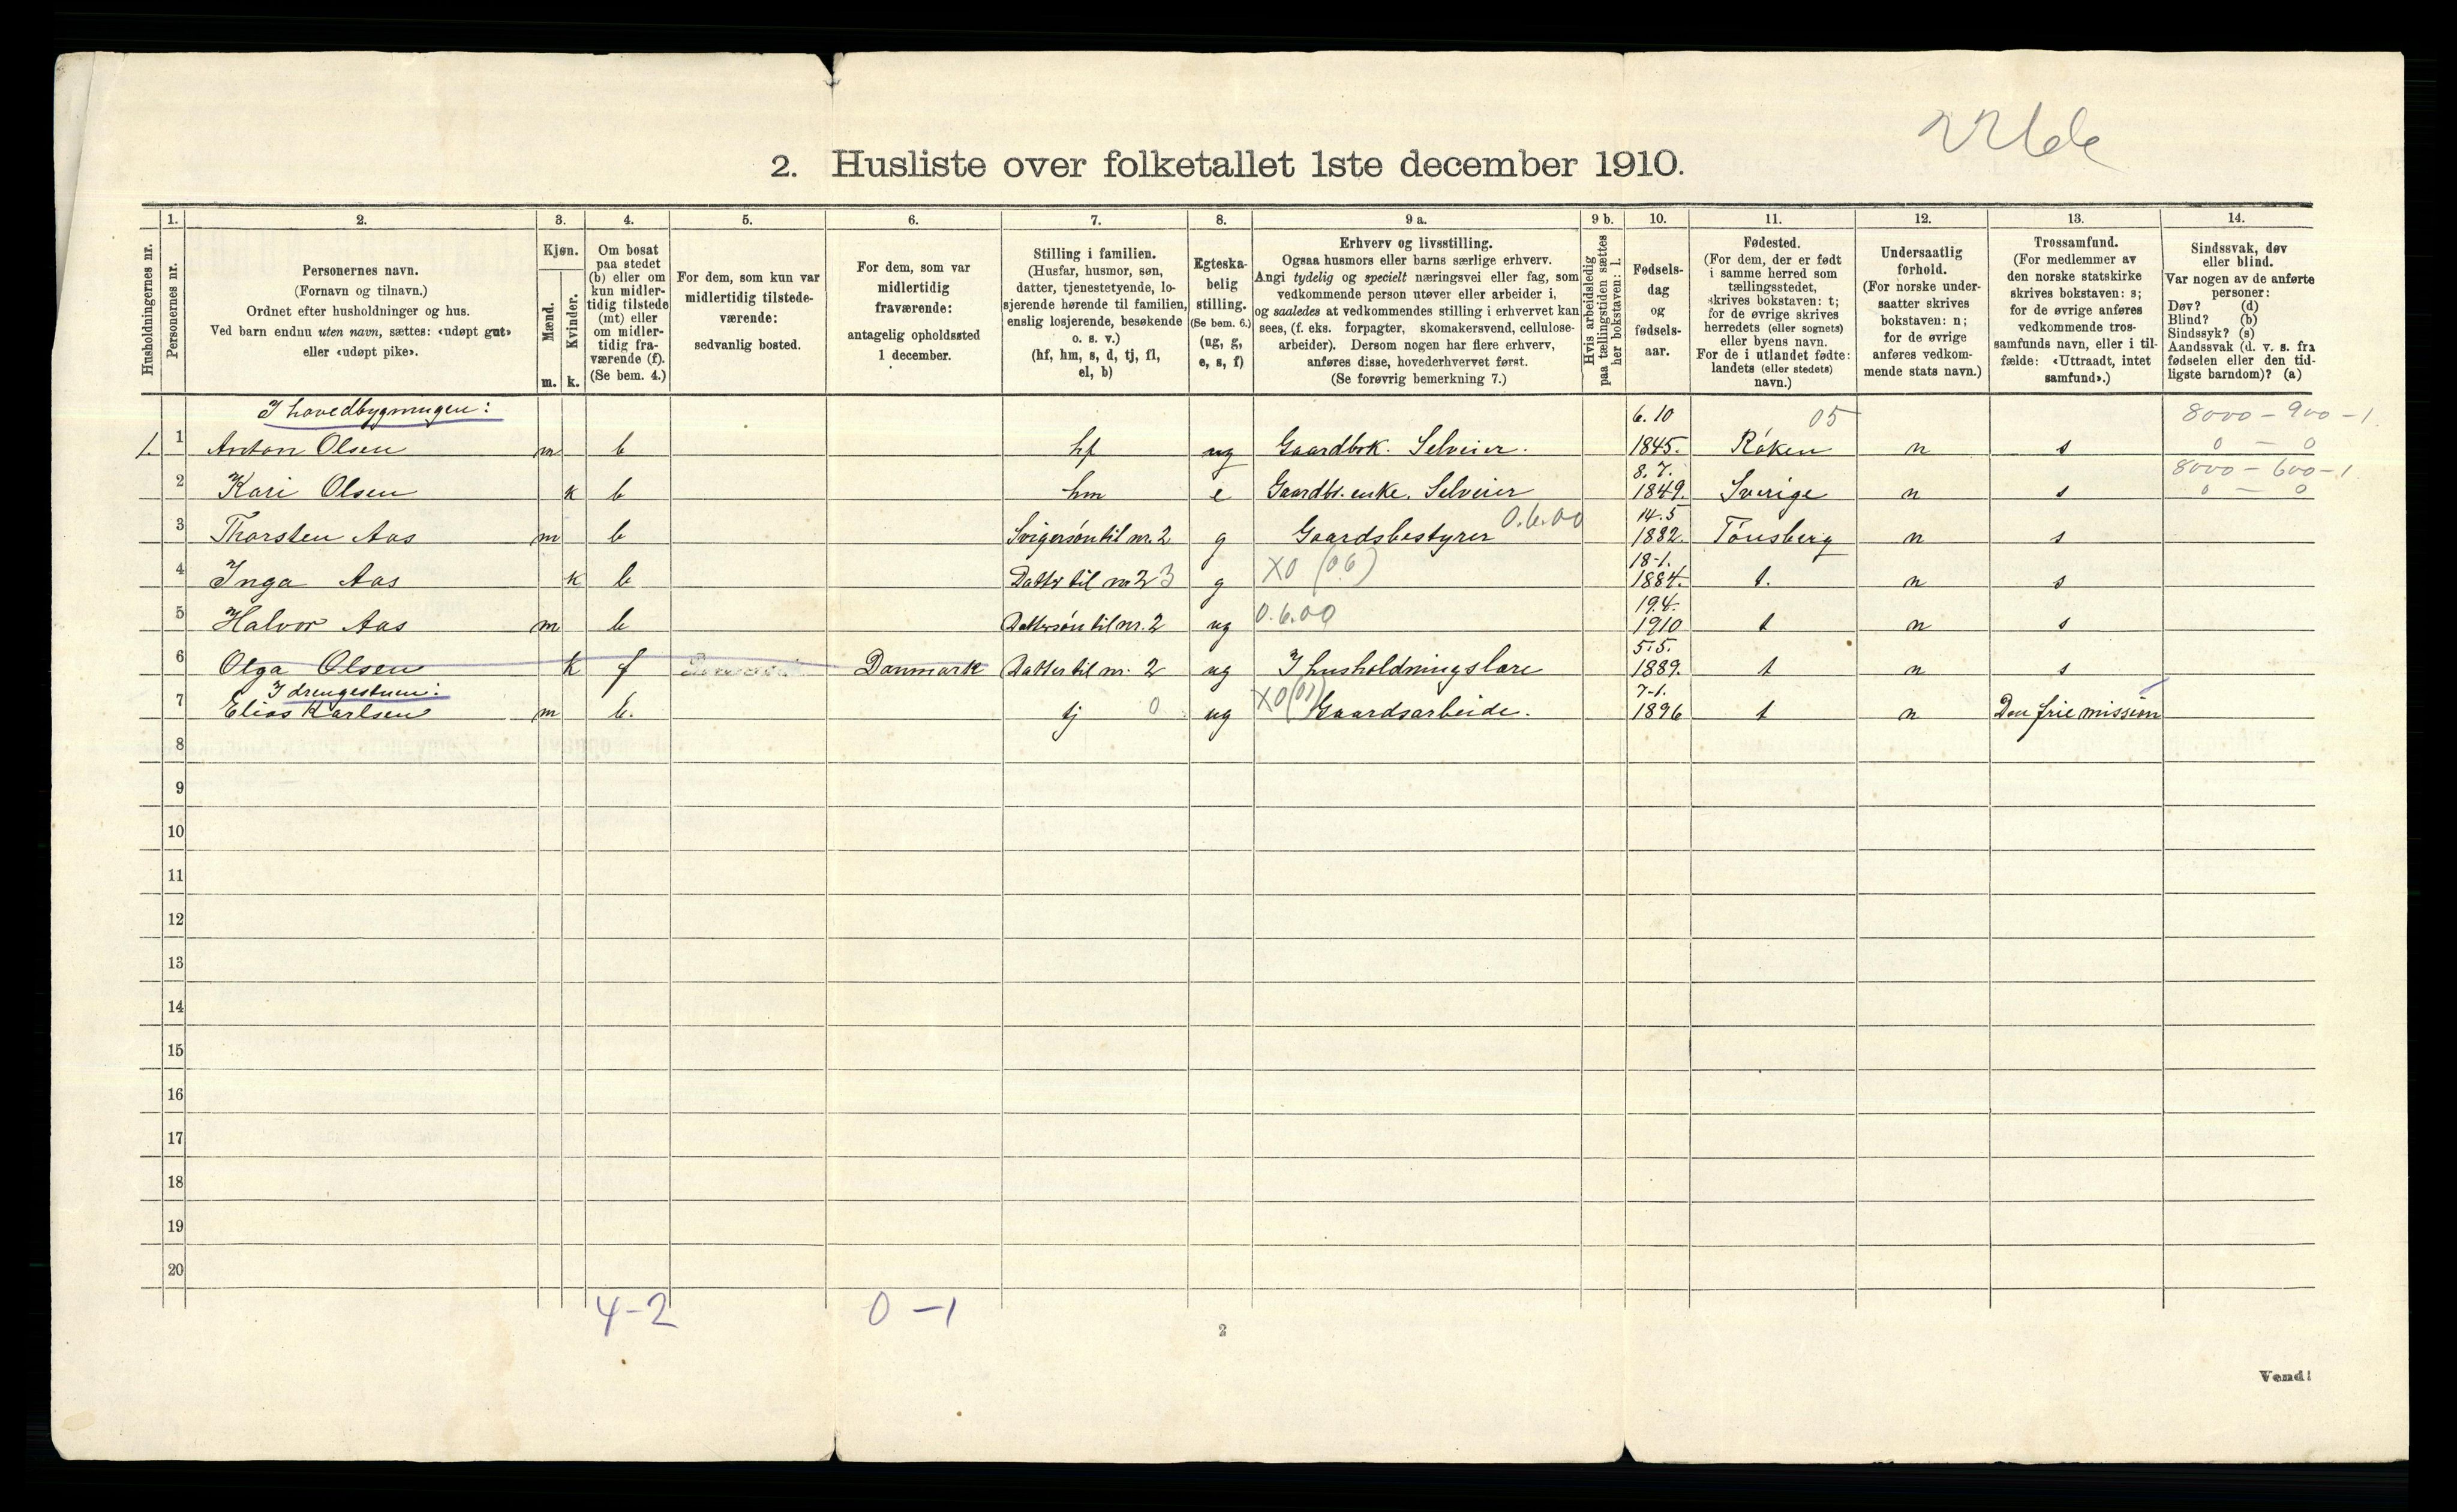 2. Husliste over folketallet 1ste december 1910.
Husholdningernes nr.
1.
Personernes nr.
2.
Personernes navn.
(Fornavn og tilnavn.)
Ordnet efter husholdninger og hus.
Ved barn endnu uten navn, sættes: «udøpt gut»
eller «udøpt pike».
3.
Kjøn.
Mænd.
Kvinder.
m. k.
4.
Om bosat
paa stedet
(b) eller om
kun midler-
tidig tilstede
(mt) eller
om midler-
tidig fra-
værende (f).
(Se bem. 4.)
5.
For dem, som kun var
midlertidig tilstede-
værende:
sedvanlig bosted.
6.
For dem, som var
midlertidig
fraværende:
antagelig opholdssted
1 december.
7.
Stilling i familien.
(Husfar, husmor, søn,
datter, tjenestetyende, lo-
sjerende hørende til familien,
enslig losjerende, besøkende
o. s. v.)
(hf, hm, s, d, tj, fl,
el, b)
8.
Egteska-
belig
stilling.
(Se bem. 6.)
(ug, g,
e, s, f)
9 a.
Erhverv og livsstilling.
Ogsaa husmors eller barns særlige erhverv.
Angi tydelig og specielt næringsvei eller fag, som
vedkommende person utøver eller arbeider i,
og saaledes at vedkommendes stilling i erhvervet kan
sees, (f. eks. forpagter, skomakersvend, cellulose-
arbeider). Dersom nogen har flere erhverv,
anføres disse, hovederhvervet først.
(Se forøvrig bemerkning 7.)
9 b.
Hvis arbeidsledig
paa tællingstiden sættes
her bokstaven: l.
10.
Fødsels-
dag
og
fødsels-
aar.
11.
Fødested.
(For dem, der er født
i samme herred som
tællingsstedet,
skrives bokstaven: t;
for de øvrige skrives
herredets (eller sognets)
eller byens navn.
For de i utlandet fødte:
landets (eller stedets)
navn.)
12.
Undersaatlig
forhold.
(For norske under-
saatter skrives
bokstaven: n;
for de øvrige
anføres vedkom-
mende stats navn.)
13.
Trossamfund.
(For medlemmer av
den norske statskirke
skrives bokstaven: s;
for de øvrige anføres
vedkommende tros-
samfunds navn, eller i til-
fælde: «Uttraadt, intet
samfund».)
14.
Sindssvak, døv
eller blind.
Var nogen av de anførte
personer:
Døv? (d)
Blind? (b)
Sindssyk? (s)
Aandssvak (d. v. s. fra
fødselen eller den tid-
ligste barndom)? (a)
I hovedbygningen: 6.10 05 8000 - 900 - 1
1. 1 Anton Olsen m b hf ug Gaardbrk. Selveier. 1845. Røken n s 0 - 0
8.7. 8000 - 600 - 1
2 Kari Olsen k b hm e Gaardbr. enke. Selveier 1849. Sverige n s 0 - 0
0.6.00 14.5
3 Thorsten Aas m b Svigersøn til nr. 2 g Gaardsbestyrer 1882. Tønsberg n s
X0 (06) 18-1.
4 Inga Aas k b Datter til nr 2 3 g 1884. t. n s
0.6.00 19.4.
5 Halvor Aas m b Dattersøn til nr. 2 ug 1910 t n s
5.5.
6 Olga Olsen k f Danmark Datter til nr. 2 ug I husholdningslære 1889. t n s
I drengestuen: X0 (01) 7-1.
7 Elias Karlsen m b. tj 0 ug Gaardsarbeide. 1896 t n Den frie mission
8
9
10
11
12
13
14
15
16
17
18
19
20
4-2 0-1
2
Vend!